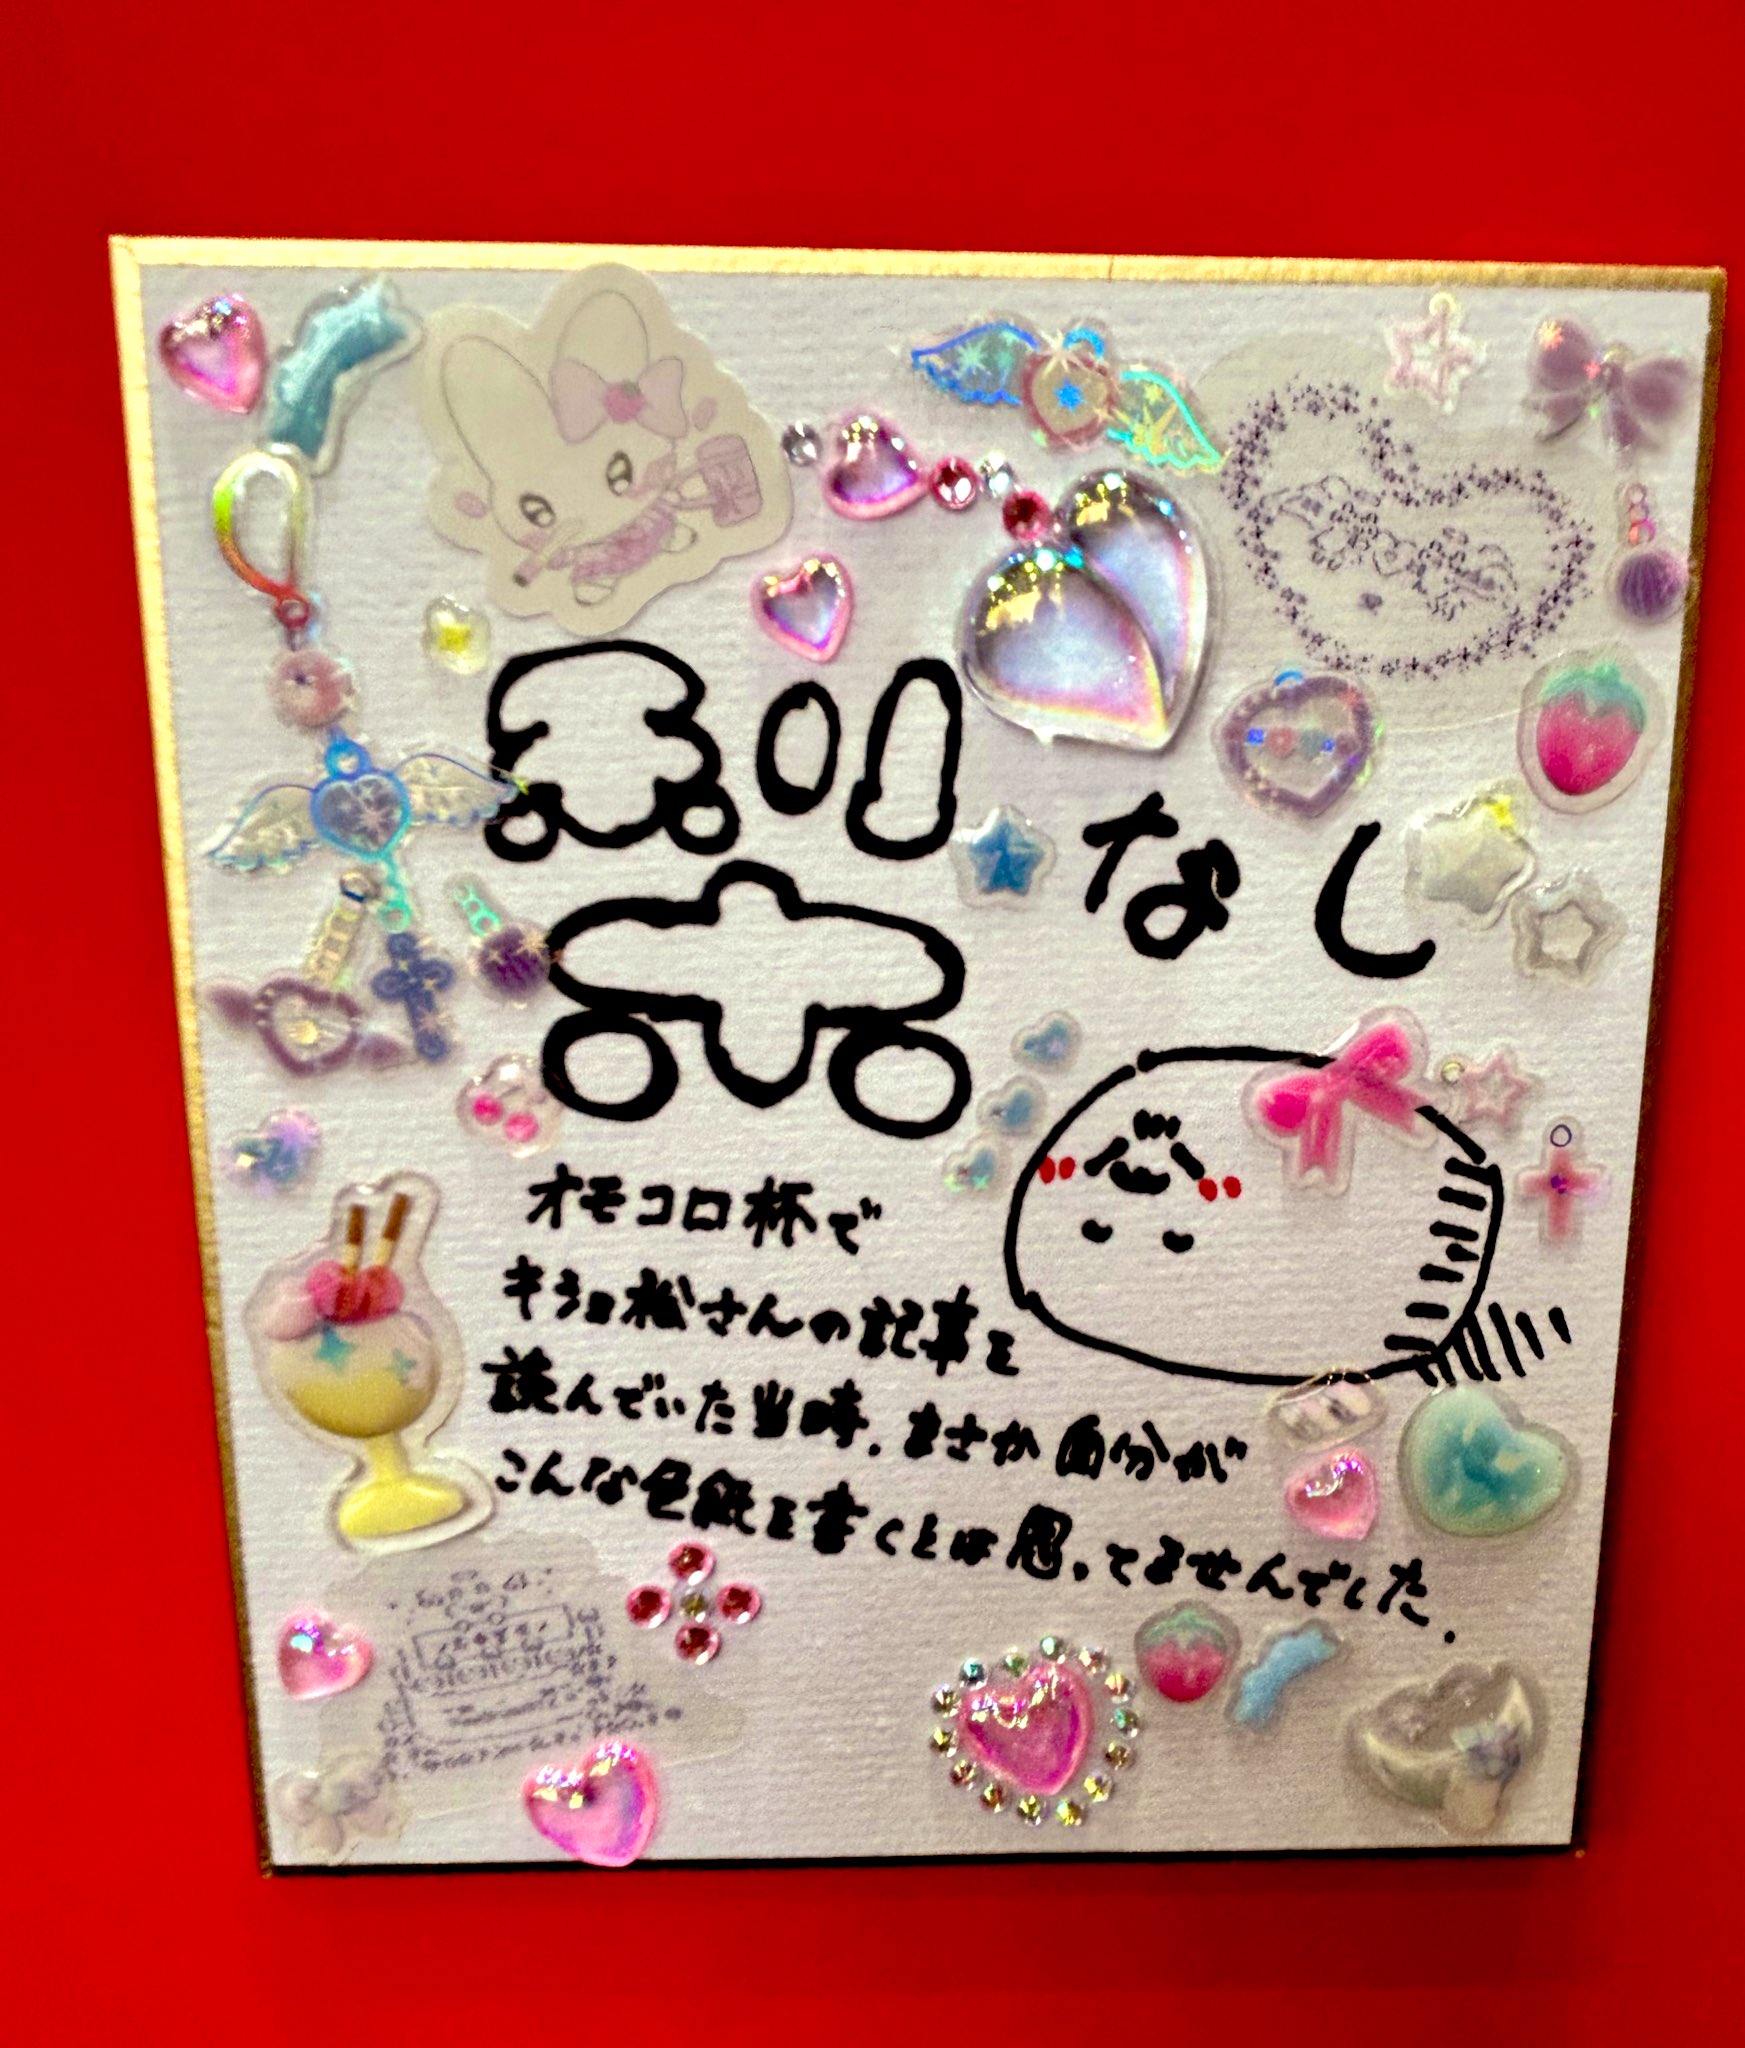 なし
オモコロ杯で
キョロ松さんの記事を
読んでいた当時、まさか自分が
こんな色紙を書くとは思ってませんでした.